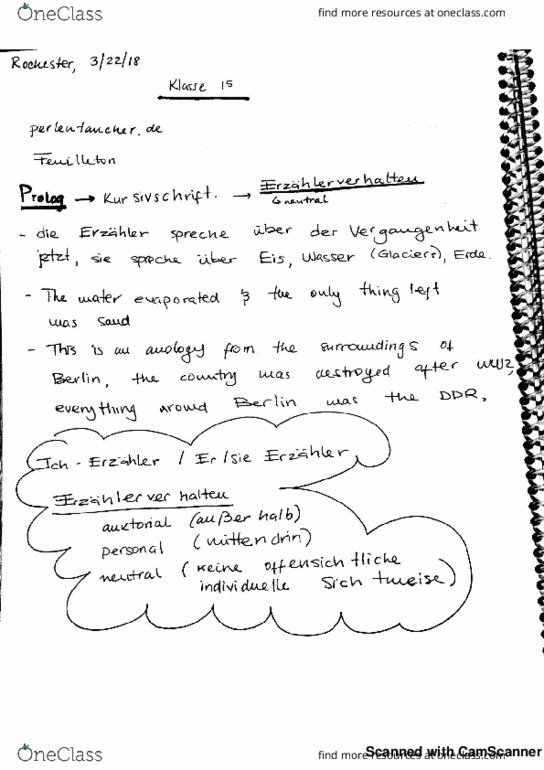 OneClass
find more resources at oneclass.com
Rochester, 3/22/18
Klasse 15
perlentaucher.de
Feuilleton
Prolog → Kursivschrift. → Erzählerverhalten
↳ neutral
- die Erzähler spreche über der Vergangenheit
jetzt, sie spreche über Eis, Wasser (Glaciers), Erde.
- The water evaporated & the only thing left
was sand
- This is an anology from the surroundings of
Berlin, the country was destroyed after WW2,
everything around Berlin was the DDR,
Ich - Erzähler / Er/sie Erzähler
Erzählerverhalten
auktorial (außerhalb)
personal (mittendrin)
neutral (keine offensichtliche
individuelle Sichtweise)
OneClass
find more resources at oneclass.com
Scanned with CamScanner